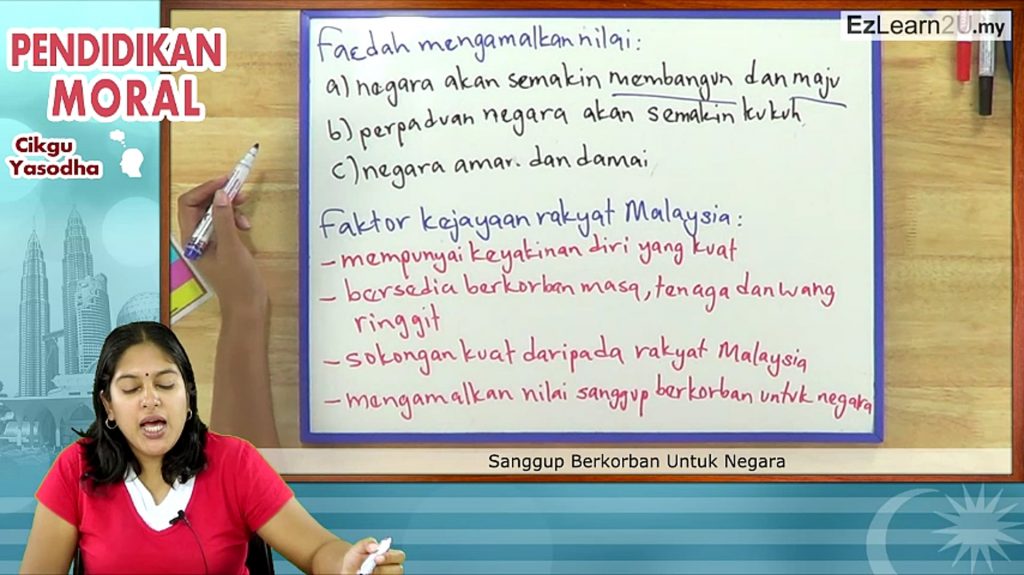 PENDIDIKAN
MORAL
Cikgu
Yasodha
EzLearn2U.my
Faedah mengamalkan nilai:
a) negara akan semakin membangun dan maju
b) perpaduan negara akan semakin kukuh
c) negara aman dan damai
Faktor kejayaan rakyat Malaysia:
- mempunyai keyakinan diri yang kuat
- bersedia berkorban masa, tenaga dan wang
ringgit
- sokongan kuat daripada rakyat Malaysia
- mengamalkan nilai sanggup berkorban untuk negara
Sanggup Berkorban Untuk Negara